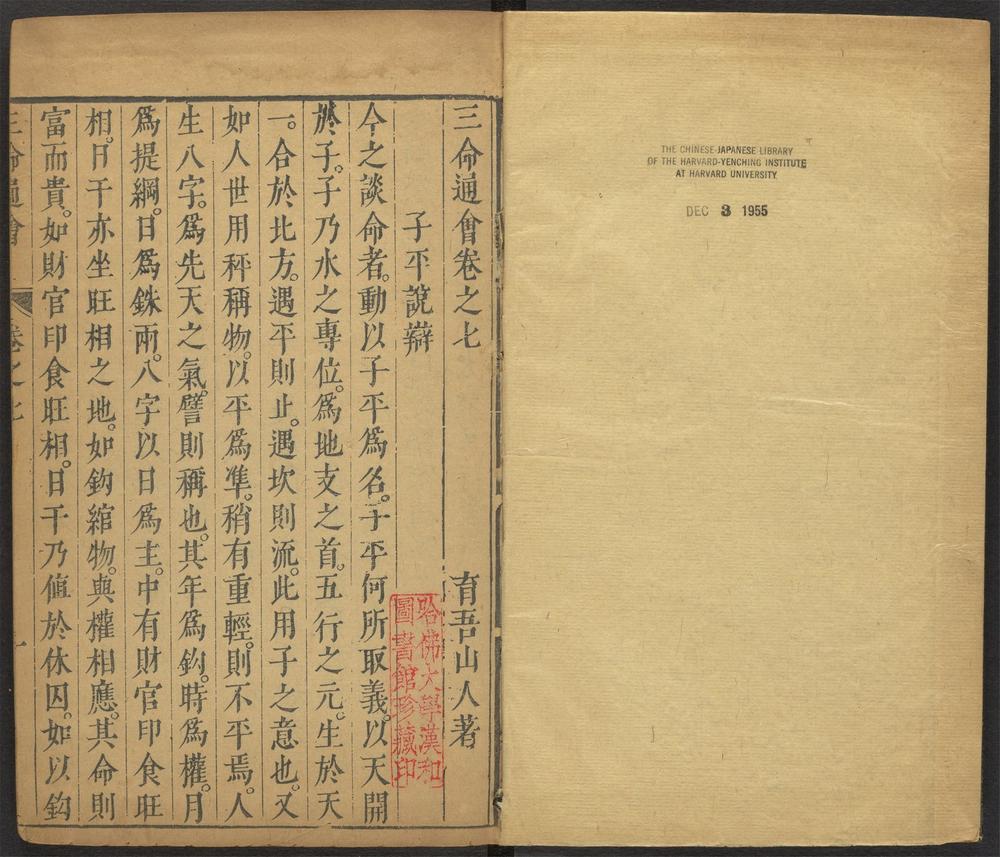 THE CHINESE-JAPANESE LIBRARY
OF THE HARVARD-YENCHING INSTITUTE
AT HARVARD UNIVERSITY
DEC 3 1955
三命通會卷之七
育吾山人著
子平說辯
今之談命者。動以子平爲名。子平何所取義。以天開
於子。子乃水之專位。爲地支之首。五行之元。生於天
一。合於北方。遇平則止。遇坎則流。此用子之意也。又
如人世用秤稱物。以平爲準。稍有重輕。則不平焉。人
生八字。爲先天之氣。譬則稱也。其年爲鈎。時爲權。月
爲提綱。日爲銖兩。八字以日爲主。中有財官印食旺
相。日干亦坐旺相之地。如鈎綰物。與權相應。其命則
富而貴。如財官印食旺相。日干乃値於休囚。如以鈎
三命通會
卷之七
一
哈佛大學漢和
圖書館珍藏印